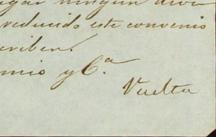 ningun
reducido este convenio
criben.
mio y C.ª
Vuelta